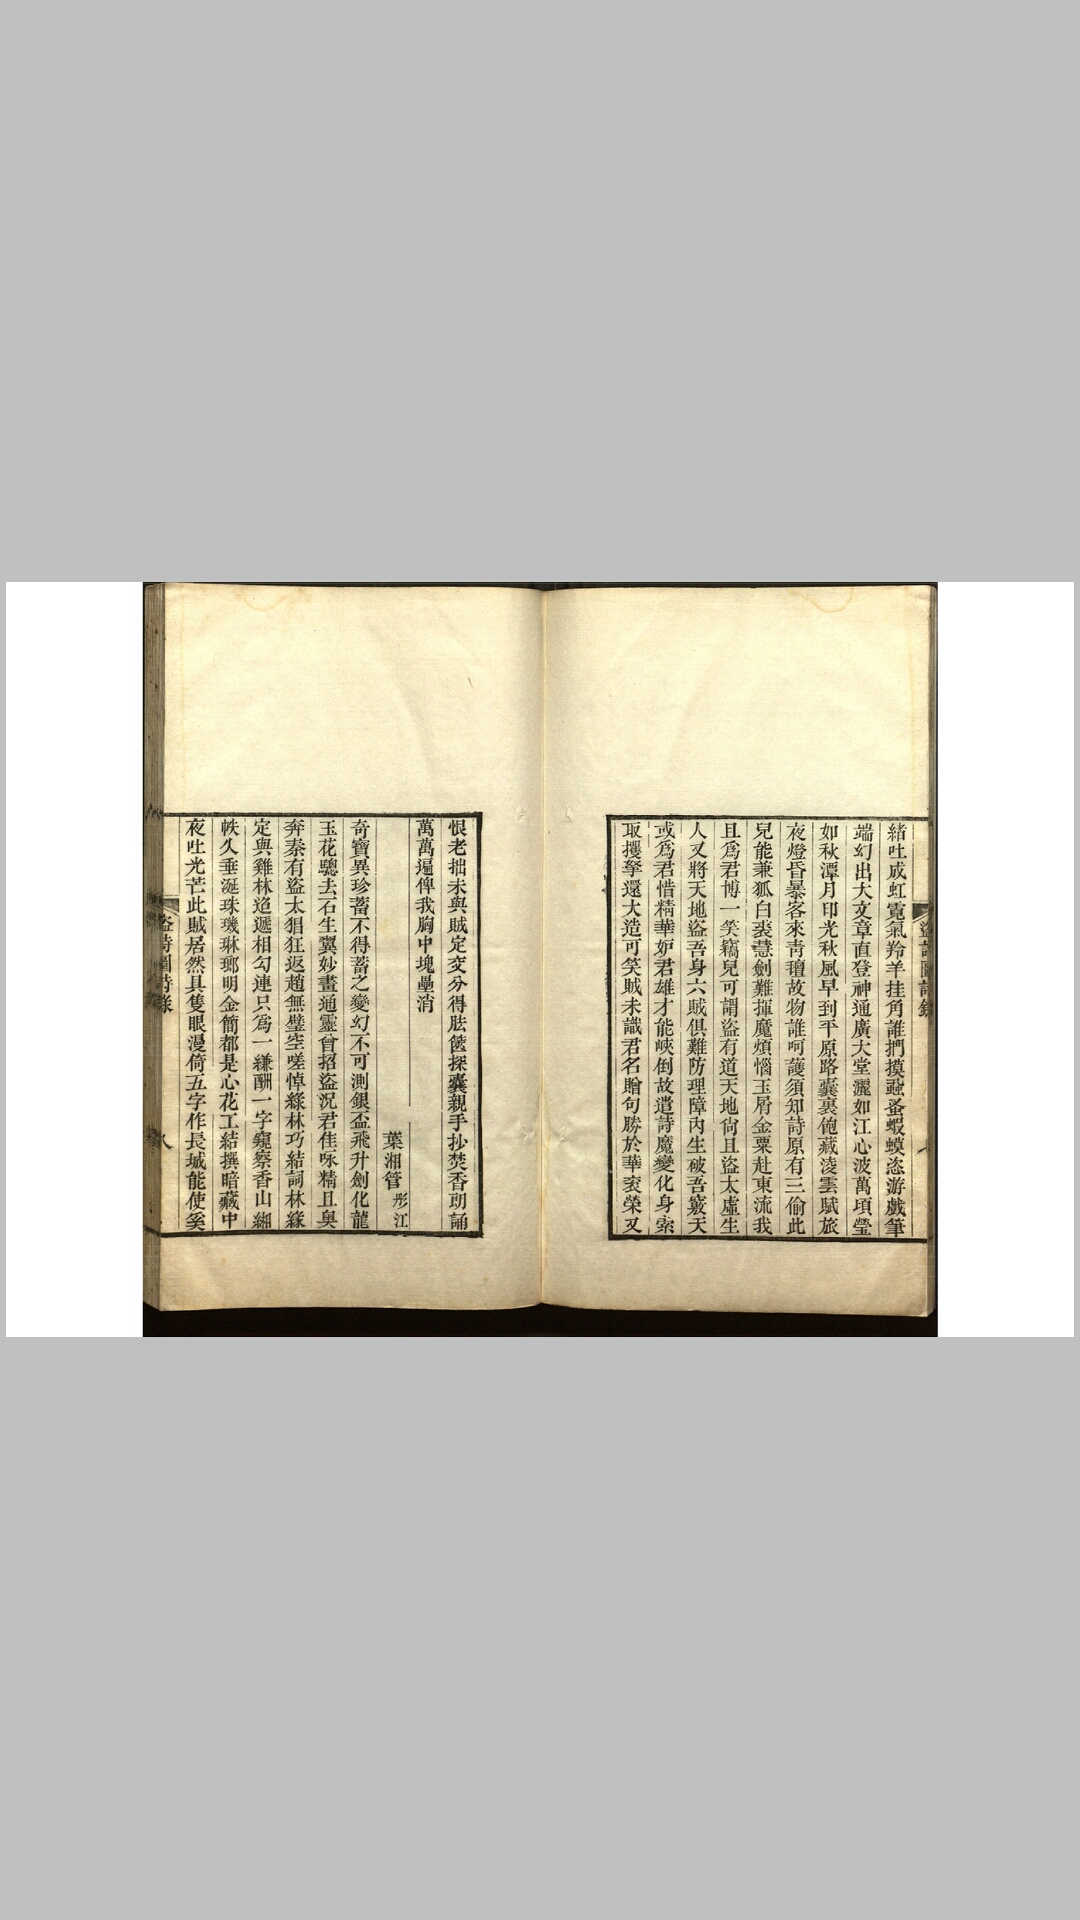 緒吐成虹霓氣羚羊挂角誰捫摸蝨蚤蝦蟆恣游戲筆
端幻出大文章直登神通廣大堂灑如江心波萬頃瑩
如秋潭月印光秋風早到平原路囊裏飽藏淩雲賦旅
夜燈昏暴客來靑氊故物誰呵護須知詩原有三偷此
兒能兼狐白裘慧劍難揮魔煩惱玉屑金粟赴東流我
且爲君博一笑竊兒可謂盜有道天地尙且盜太虛生
人又將天地盜吾身六賊俱難防理障內生破吾籔天
或爲君惜精華妒君雄才能峽倒故遣詩魔變化身索
取攫拏還大造可笑賊未識君名贈句勝於華衮榮又
恨老拙未與賊定交分得胠篋探囊親手抄焚香朗誦
萬萬遍俾我胸中塊壘消
葉湘管 彤江
奇寶異珍蓄不得蓄之變幻不可測銀盃飛升劍化龍
玉花驄去石生翼妙畫通靈曾招盜況君佳咏精且奧
奔秦有盜太猖狂返趙無璧空嗟悼綠林巧結詞林緣
定與雞林迨遞相勾連只爲一縑酬一字窺察香山緗
帙久垂涎珠璣琳瑯明金簡都是心花工結撰暗藏中
夜吐光芒此賊居然具隻眼漫倚五字作長城能使奚
盜詩圖詩錄
八